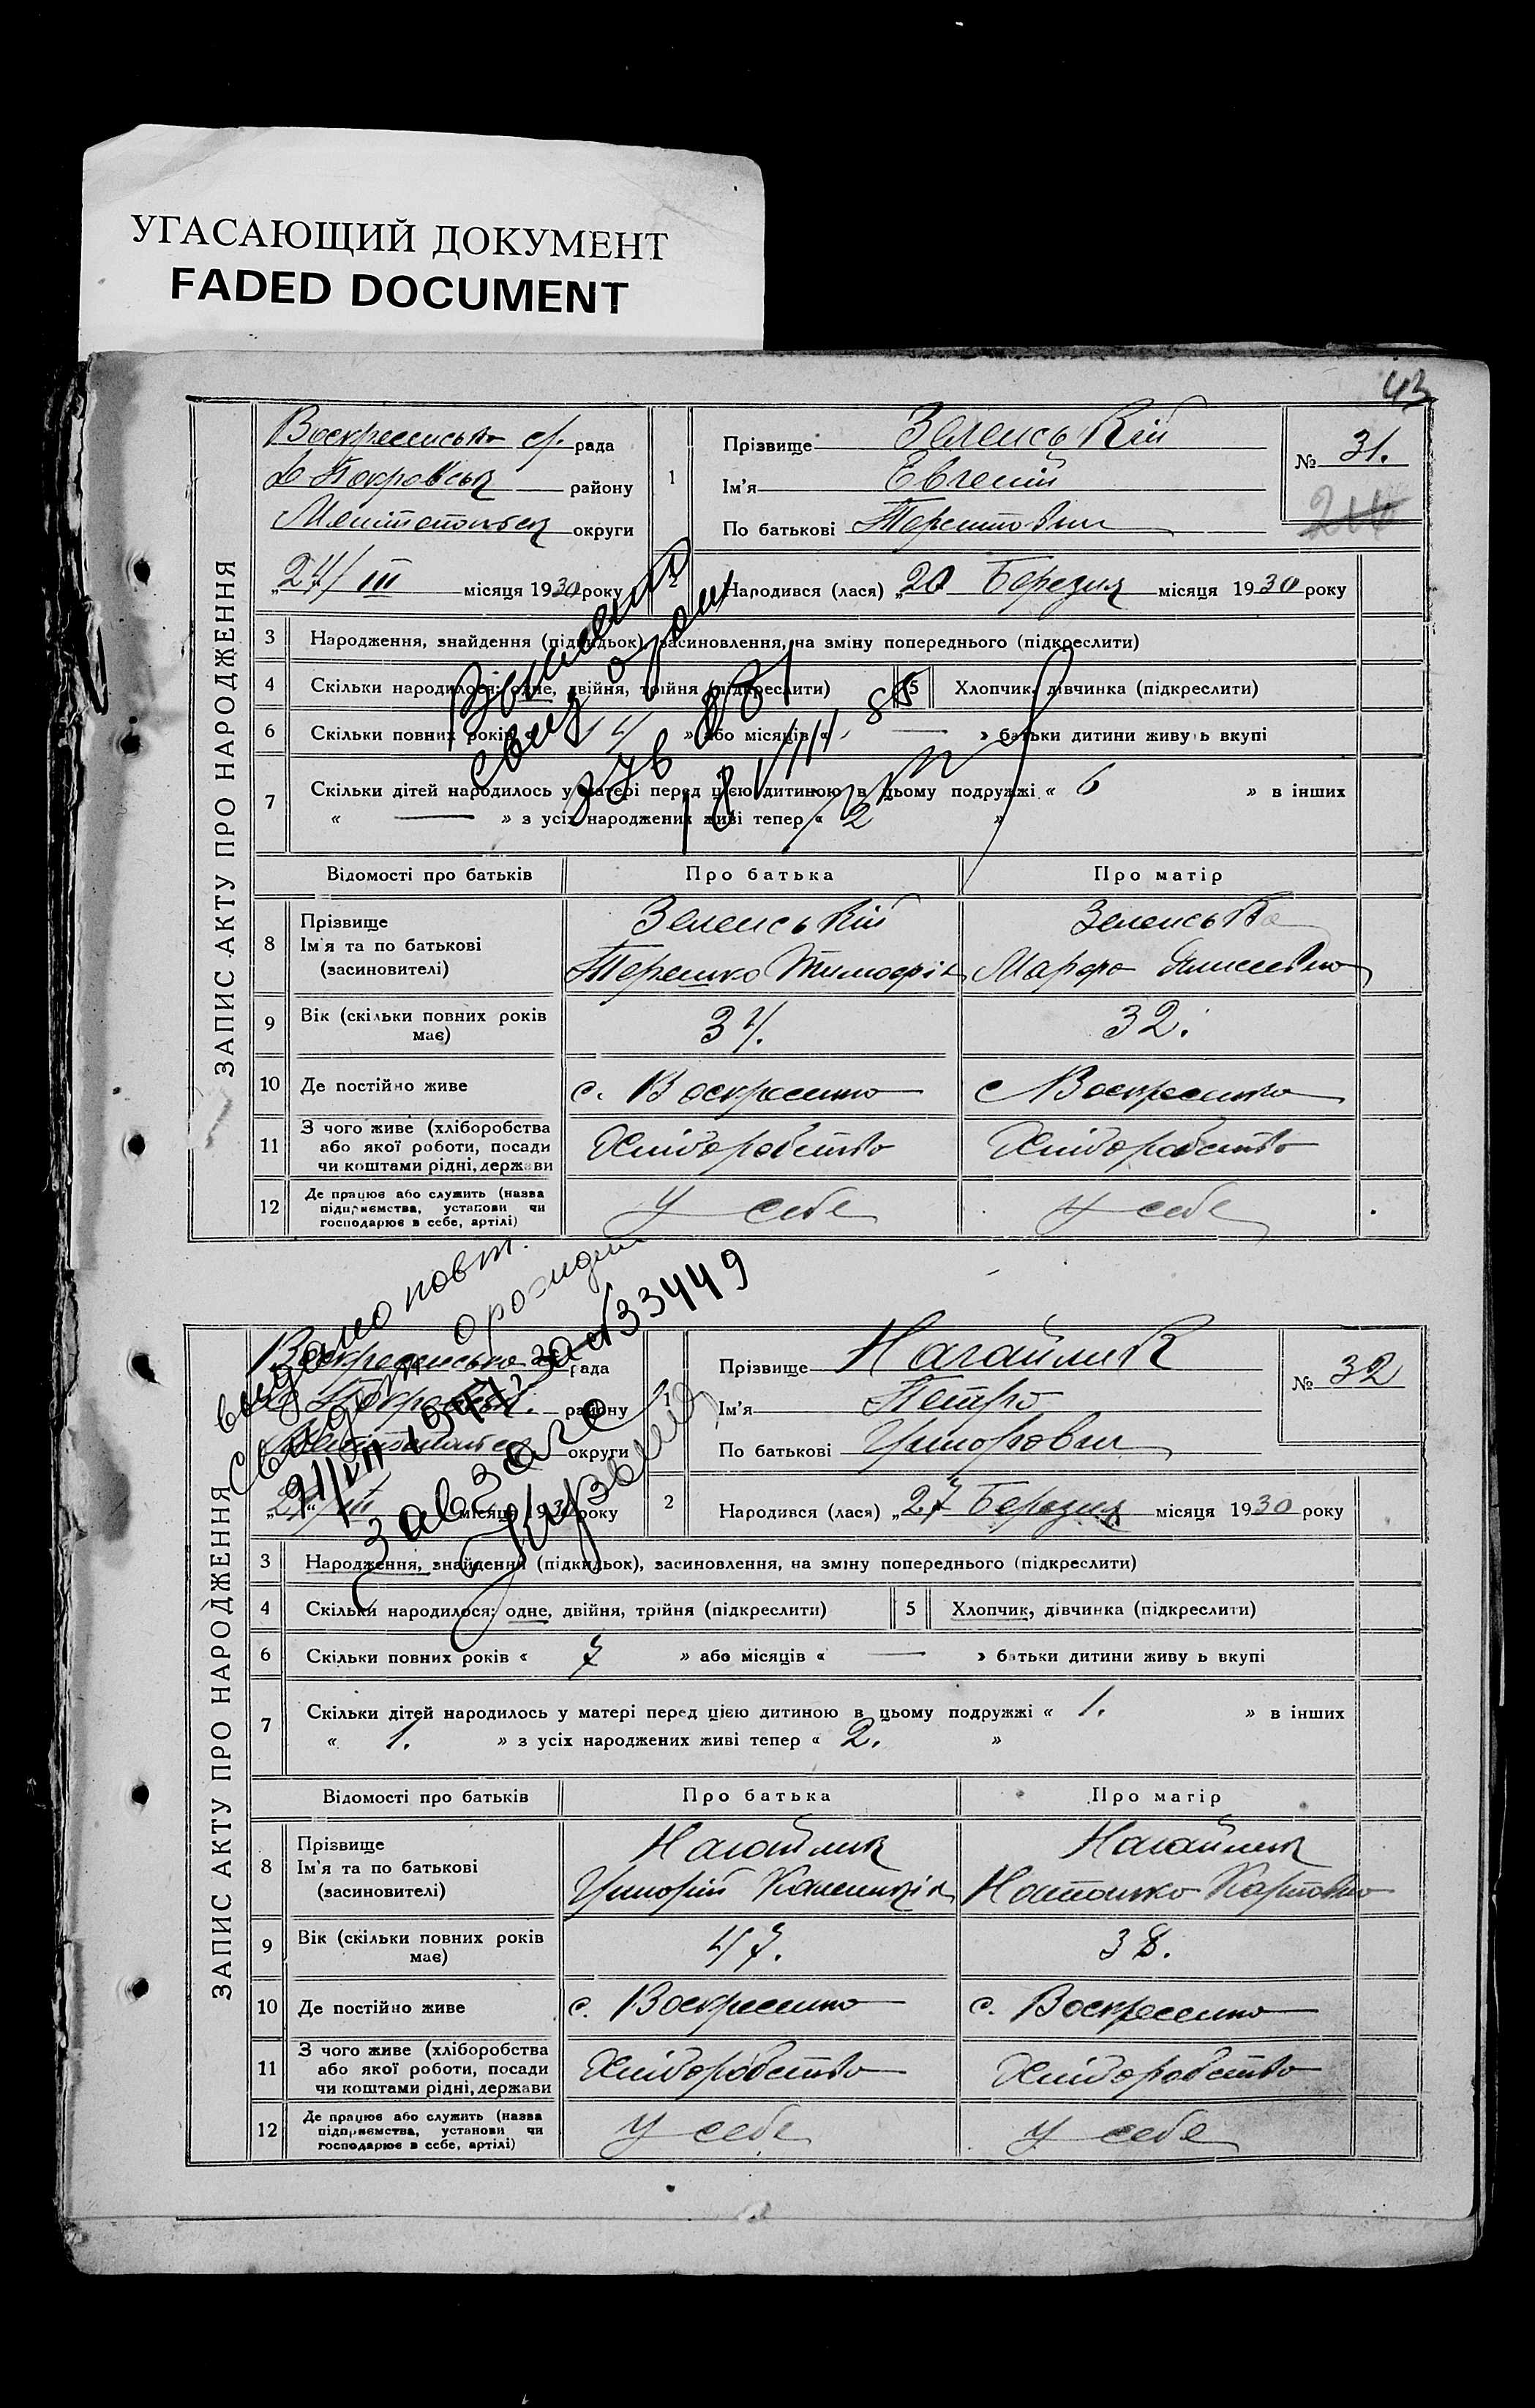 УГАСАЮЩИЙ ДОКУМЕНТ
FADED DOCUMENT
43
ЗАПИС АКТУ ПРО НАРОДЖЕННЯ
Воскресенська с/. рада
Покровськ району
Мелітопольськ округи
„27/III місяця 1930 року
1
Прізвище Зеленський
Ім'я Євгеній
По батькові
№ 31.
2
Народився (лася) „20 Березня місяця 1930 року
3 Народження, знайдення (підкидьок), засиновлення, на зміну попереднього (підкреслити)
4 Скільки народилося: одне, двійня, трійня (підкреслити)
5 Хлопчик, дівчинка (підкреслити)
6 Скільки повних років « 14 » або місяців « — » батьки дитини живуть вкупі
7 Скільки дітей народилось у матері перед цією дитиною в цьому подружжі « 6 » в інших
« — » з усіх народжених живі тепер « 2 »
Відомості про батьків Про батька Про матір
8 Прізвище
Ім'я та по батькові
(засиновителі)
Зеленський
Терешко Тимофій
Зеленська
Марфа
9 Вік (скільки повних років
має)
34. 32.
10 Де постійно живе с. Воскресенка с Воскресенка
11 З чого живе (хліборобства
або якої роботи, посади
чи коштами рідні, держави
Хліборобство Хліборобство
12 Де працює або служить (назва
підприємства, установи чи
господарює в себе, артілі)
У себе У себе
видано повт.
33449
ЗАПИС АКТУ ПРО НАРОДЖЕННЯ
Воскресенська рада
району
округи
місяця 1930 року
1
Прізвище Нагайлик
Ім'я Петро
По батькові
№ 32
2
Народився (лася) „27 Березня місяця 1930 року
3 Народження, знайдення (підкидьок), засиновлення, на зміну попереднього (підкреслити)
4 Скільки народилося: одне, двійня, трійня (підкреслити)
5 Хлопчик, дівчинка (підкреслити)
6 Скільки повних років « 7 » або місяців « — » батьки дитини живуть вкупі
7 Скільки дітей народилось у матері перед цією дитиною в цьому подружжі « 1. » в інших
« 1. » з усіх народжених живі тепер « 2. »
Відомості про батьків Про батька Про матір
8 Прізвище
Ім'я та по батькові
(засиновителі)
Нагайлик
Нагайлик
Карповна
9 Вік (скільки повних років
має)
47. 38.
10 Де постійно живе с. Воскресенка с. Воскресенка
11 З чого живе (хліборобства
або якої роботи, посади
чи коштами рідні, держави
Хліборобство Хліборобство
12 Де працює або служить (назва
підприємства, установи чи
господарює в себе, артілі)
У себе У себе